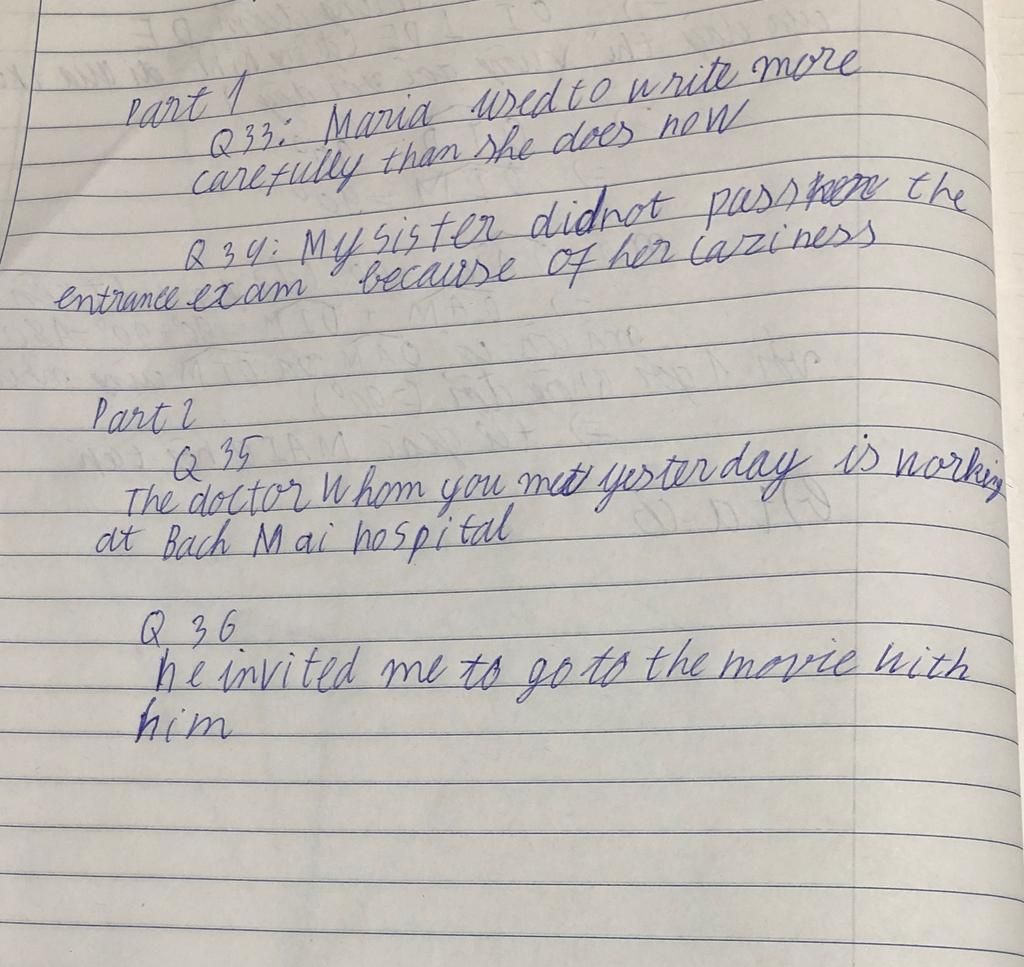 Part 1
Q33: Maria used to write more
carefully than she does now
Q34: My sister didnot pass the
entrance exam because of her laziness
Part 2
Q 35
The doctor whom you met yesterday is working
at Bach Mai hospital
Q 36
he invited me to go to the movie with
him